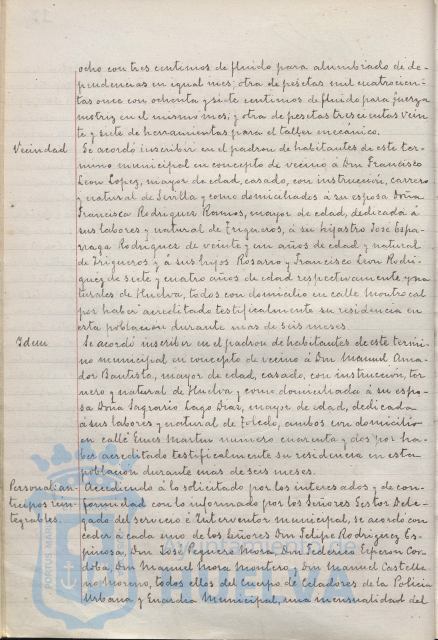 ocho con tres centimos de fluido para alumbrado de de-
pendencias en igual mes; otra de pesetas mil cuatrocien-
tas once con ochenta y siete centimos de fluido para fuerza
motriz en el mismo mes; y otra de pesetas trescientas vein-
te y siete de herramientas para el taller mecánico.
Vecindad Se acordó inscribir en el padron de habitantes de este ter-
mino municipal en concepto de vecino á Don Francisco
Leon Lopez, mayor de edad, casado, con instrucción, carrero
y natural de Sevilla y como domiciliados á su esposa Doña
Francisca Rodriguez Ramos, mayor de edad, dedicada á
sus labores y natural de Trigueros, á su hijastro José Espa-
rraga Rodriguez de veinte y un años de edad y natural
de Trigueros y á sus hijos Rosario y Francisco Leon Rodri-
guez de siete y cuatro años de edad respectivamente y na-
turales de Huelva, todos con domicilio en calle Montrocal
por haber acreditado testificalmente su residencia en
esta población durante mas de seis meses.
Idem Se acordó inscribir en el padron de habitantes de este termi-
no municipal en concepto de vecino á Don Manuel Ama-
dor Bautista, mayor de edad, casado, con instruccion, tor
nero y natural de Huelva y como domiciliada á su espo-
sa Doña Sagrario Lago Diaz, mayor de edad, dedicada
á sus labores y natural de Toledo, ambos con domicilio
en calle Enes Martin numero cuarenta y dos por ha-
ber acreditado testificalmente su residencia en esta
población durante mas de seis meses.
Personal: an- Accediendo á lo solicitado por los interesados y de con-
ticipos rein- formidad con lo informado por los Señores Gestor Dele-
tegrables. gado del servicio é Interventor municipal, se acordó con
ceder á cada uno de los Señores Don Felipe Rodriguez Es-
pinosa, Don José Peguero Mora, Don Federico Cor-
doba, Don Manuel Mora Montero y Don Manuel Castella
no Moreno, todos ellos del Cuerpo de Celadores de la Policia
Urbana y Guardia Municipal, una mensualidad del
PORTUS MARIS